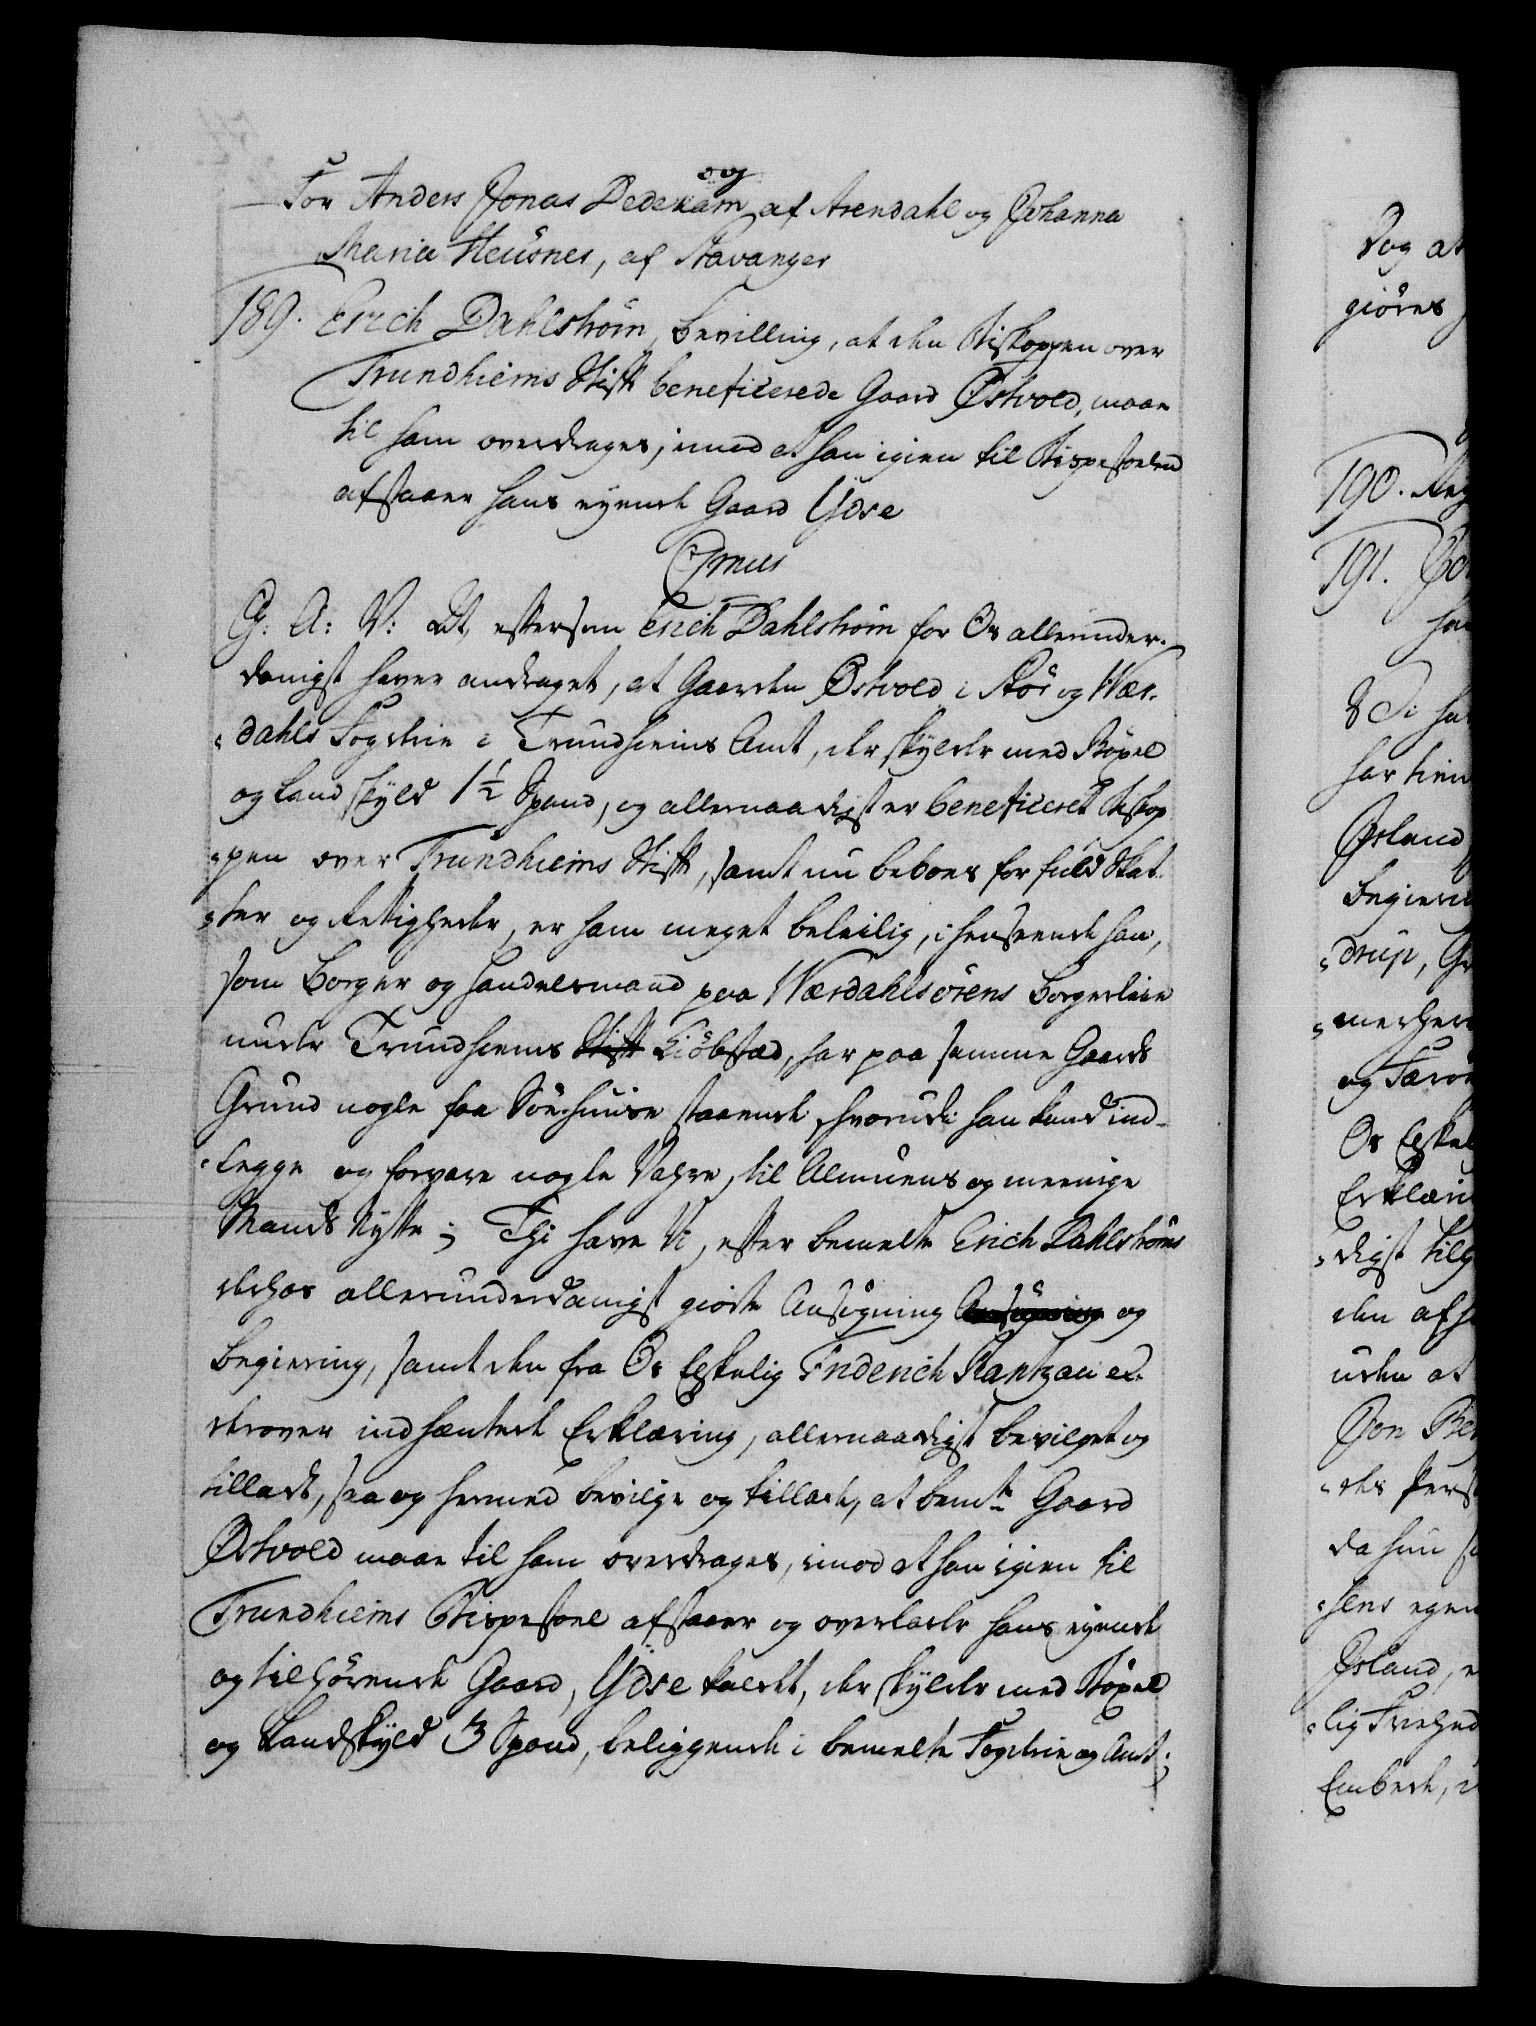 og
For Anders Jonas Dedekam af Arendahl og Johanna
Maria Heusner, af Stavanger
189. Erich Dahlstrøm, Bevilling, at den Biskoppen over
Trundhiems Stift beneficerede Gaard Østvold, maae
til ham overdrages, imod at han igien til Bispestoelen
afstaaer hans eyende Gaard Ydse
C. A: V: At, eftersom Erich Dahlstrøm for Os allerunder-
danigst haver andraget, at Gaarden Østvold i Stør og Vær-
dahls Fogderie i Trundhiems Amt, der skylder med Bøxel
og Landskyld 1½ Spand, og allernaadigst er beneficeret Biskop-
pen over Trundhiems Stift, samt nu beboes for fuld Skat-
ter og Rettigheder, er ham meget beleilig, i henseende han,
som Borger og Handelsmand paa Værdahlsørens Borgerleie
under Trundhiems Stift Kiøbstæd, har paa samme Gaards
Grund nogle faa Søe-huuse staaende, hvorudi han kand ind-
legge og forvare nogle Vahre, til Almuens og meenige
Mands Nytte; Thi have Vi, efter bemelte Erich Dahlstrøms
derhos allerunderdanigst giorte Ansøgning Ansøgning og
Begiering, samt den fra Os Elskelig Friderich Rantzau er
derover indhæntede Erklæring, allernaadigst bevilget og
tilladt, saa og hermed bevilge og tillade, at bemte Gaard
Østvold maae til ham overdrages, imod at han igien til
Trundhiems Bispestoel afstaaer og overlader hans eyende
og tilhørende Gaard, Ydse kaldet, der skylder med Bøxel
og Landskyld 3 Spand, beliggende i bemelte Fogderie og Amt;
Dog at
giøres
190.
191.
har tien
Island
Begiering
drup, Gr
og Færøe
Os Elskel
Erklæring
digst tilg
den afh
uden at
Jon
des Perso
da hun
hens egen
Island,
lig Frihed
Embede, i